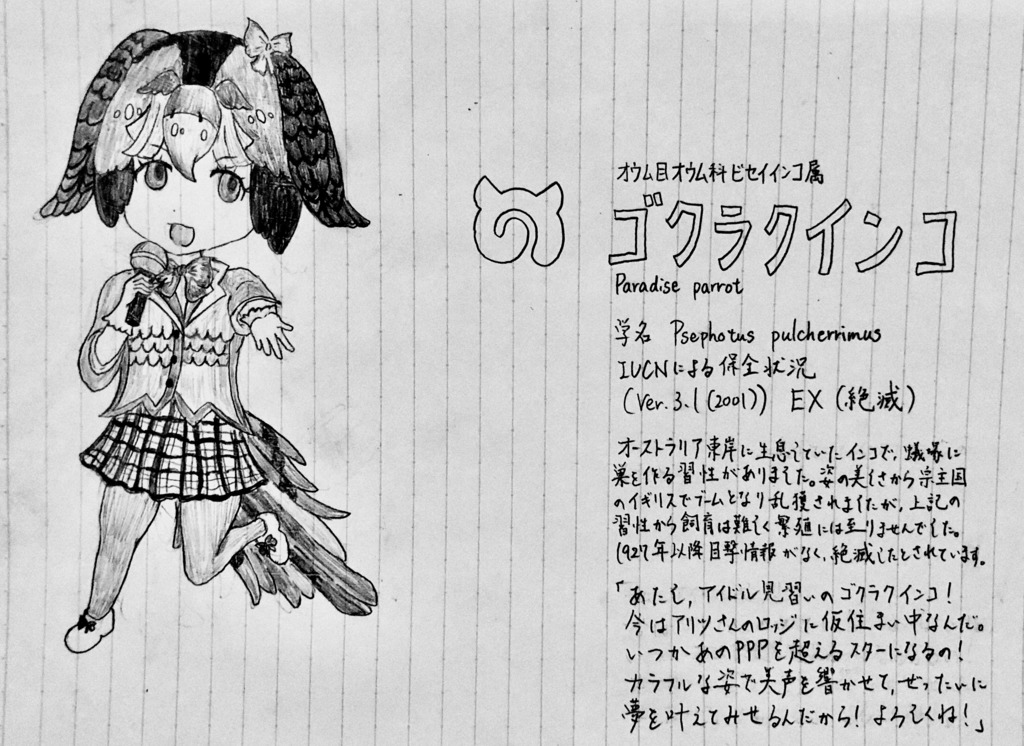 オウム目オウム科ビセイインコ属
ゴクラクインコ
Paradise parrot
学名 Psephotus pulcherrimus
IUCNによる保全状況
(Ver.3.1(2001)) EX (絶滅)
オーストラリア東岸に生息していたインコで、蟻塚に
巣を作る習性がありました。姿の美しさから宗主国
のイギリスでブームとなり乱獲されましたが、上記の
習性から飼育は難しく繁殖には至りませんでした。
1927年以降目撃情報がなく、絶滅したとされています。
「あたし、アイドル見習いのゴクラクインコ!
今はアリツさんのロッジに仮住まい中なんだ。
いつかあのPPPを超えるスターになるの!
カラフルな姿で美声を響かせて、ぜったいに
夢を叶えてみせるんだから! よろしくね!」